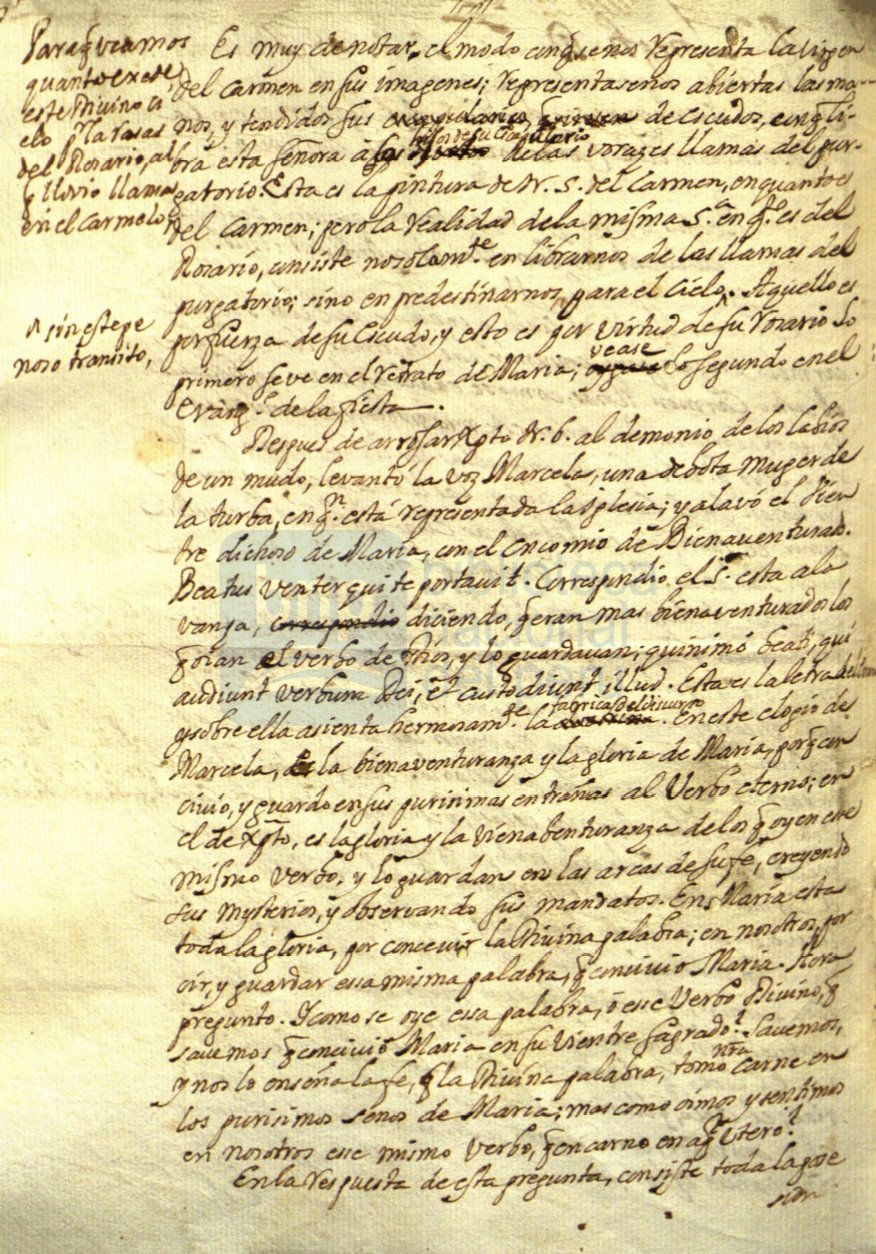 Paraq̃ veamos
quanto exede
este Divino ci
elo pª la rasas
del Rosario, al
q̃ llovio llamas
en el Carmelo,
^ sin este pe
noso transito,
Es muy de notar, el modo conq̃ se nos representa la Virgen
del Carmen en sus imagenes; representasenos abiertas las ma-
nos, y tendidos sus de escudos, conq̃ li-
hijos de su Escapulario
bra esta señora à los de las vorazes llamas del pur-
gatorio. Esta es la pintura de N. S. del Carmen, en quanto es
del Carmen; pero la realidad de la misma S.ª en q.ᵗᵒ es del
Rosario, consiste no solam.ᵗᵉ en librarnos de las llamas del
purgatorio; sino en predestinarnos para el Cielo^. Aquello es
por fuerza de su Escudo, y esto es por virtud de su rosario. Lo
vease
primero se ve en el retrato de Maria; oygase lo segundo en el
Evang.º de la fiesta.
Despues de arrojar Xpto N. b. al demonio, de los labios
de un mudo, levantó la voz Marcela, una debota muger de
la turba, en q.ⁿ está representada la Iglesia; y alavó el vien
tre dichoso de Maria, con el encomio de Bienaventurado.
Beatus venter qui te portavit. Correspondio el S. esta ala
vanza, correspondio diciendo, q̃ eran mas bienaventurados los
q̃ oian el verbo de Dios, y lo guardavan; quinimó beati, qui
audiunt verbum Dei, et custodiunt illud. Esta es la letra del
fabrica del discurso
y sobre ella asienta hermosam.ᵗᵉ la. En este elogio de
Marcela, la bienaventuranza y la gloria de Maria, porq̃ con
civio, y guardo en sus purisimas entrañas al Verbo eterno; en
el de Xpto, es la gloria y la vienabenturanza de los q̃ oyen este
mismo verbo, y lo guardan en las arcas de su fe, creyendo
sus mysterios, y observando sus mandatos. En Maria esta
toda la gloria, por concevir la Divina palabra; en nosotros, por
oir, y guardar essa misma palabra, q̃ concivio Maria. Aora
pregunto. Y como se oye essa palabra, ó esse Verbo Divino, q̃
savemos q̃ concivió Maria en su vientre sagrado? Savemos,
nrã
y nos lo enseña la fe, q̃ la Divina palabra, tomó carne en
los purisimos senos de Maria; mas como oimos y sentimos
en nosotros esse mismo Verbo, q̃ encarno en aq.ˡ Utero?
En la respuesta de esta pregunta, consiste toda la pose
sion